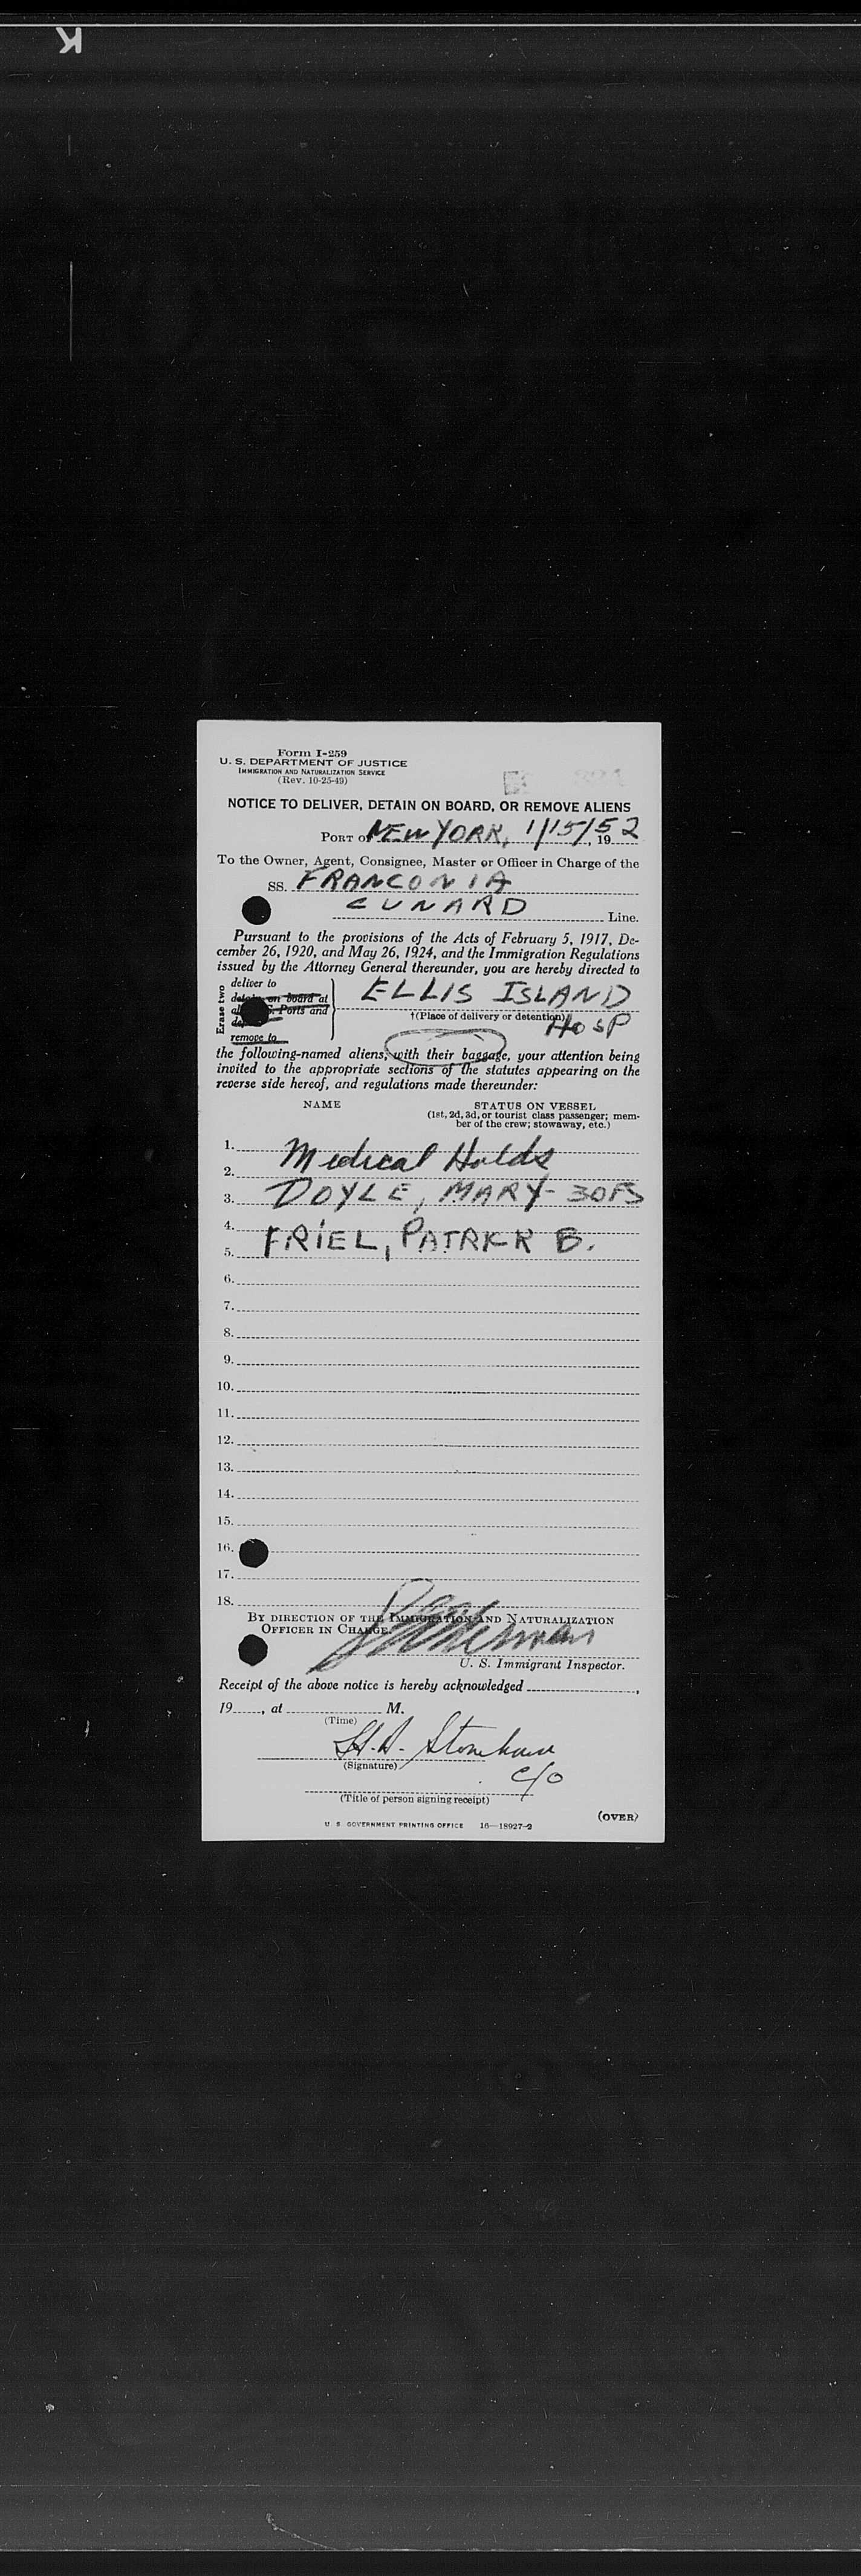 K
Form I-259
U. S. DEPARTMENT OF JUSTICE
IMMIGRATION AND NATURALIZATION SERVICE
(Rev. 10-25-49)
NOTICE TO DELIVER, DETAIN ON BOARD, OR REMOVE ALIENS
PORT OF NEW YORK, 1/15/52, 19
To the Owner, Agent, Consignee, Master or Officer in Charge of the
SS. FRANCONIA
CUNARD Line.
Pursuant to the provisions of the Acts of February 5, 1917, De-
cember 26, 1920, and May 26, 1924, and the Immigration Regulations
issued by the Attorney General thereunder, you are hereby directed to
Erase two
deliver to
detain on board at
Ports and
remove to
ELLIS ISLAND
†(Place of delivery or detention)
HOSP
the following-named aliens, with their baggage, your attention being
invited to the appropriate sections of the statutes appearing on the
reverse side hereof, and regulations made thereunder:
NAME STATUS ON VESSEL
(1st, 2d, 3d, or tourist class passenger; mem-
ber of the crew; stowaway, etc.)
1. Medical Holds
2.
3. DOYLE, MARY - 30FS
4.
5. FRIEL, PATRICK B.
6.
7.
8.
9.
10.
11.
12.
13.
14.
15.
16.
17.
18.
BY DIRECTION OF THE IMMIGRATION AND NATURALIZATION
OFFICER IN CHARGE.
U. S. Immigrant Inspector.
Receipt of the above notice is hereby acknowledged ,
19 , at M.
(Time)
(Signature)
c/o
(Title of person signing receipt)
(OVER)
U. S. GOVERNMENT PRINTING OFFICE 16—18927-2